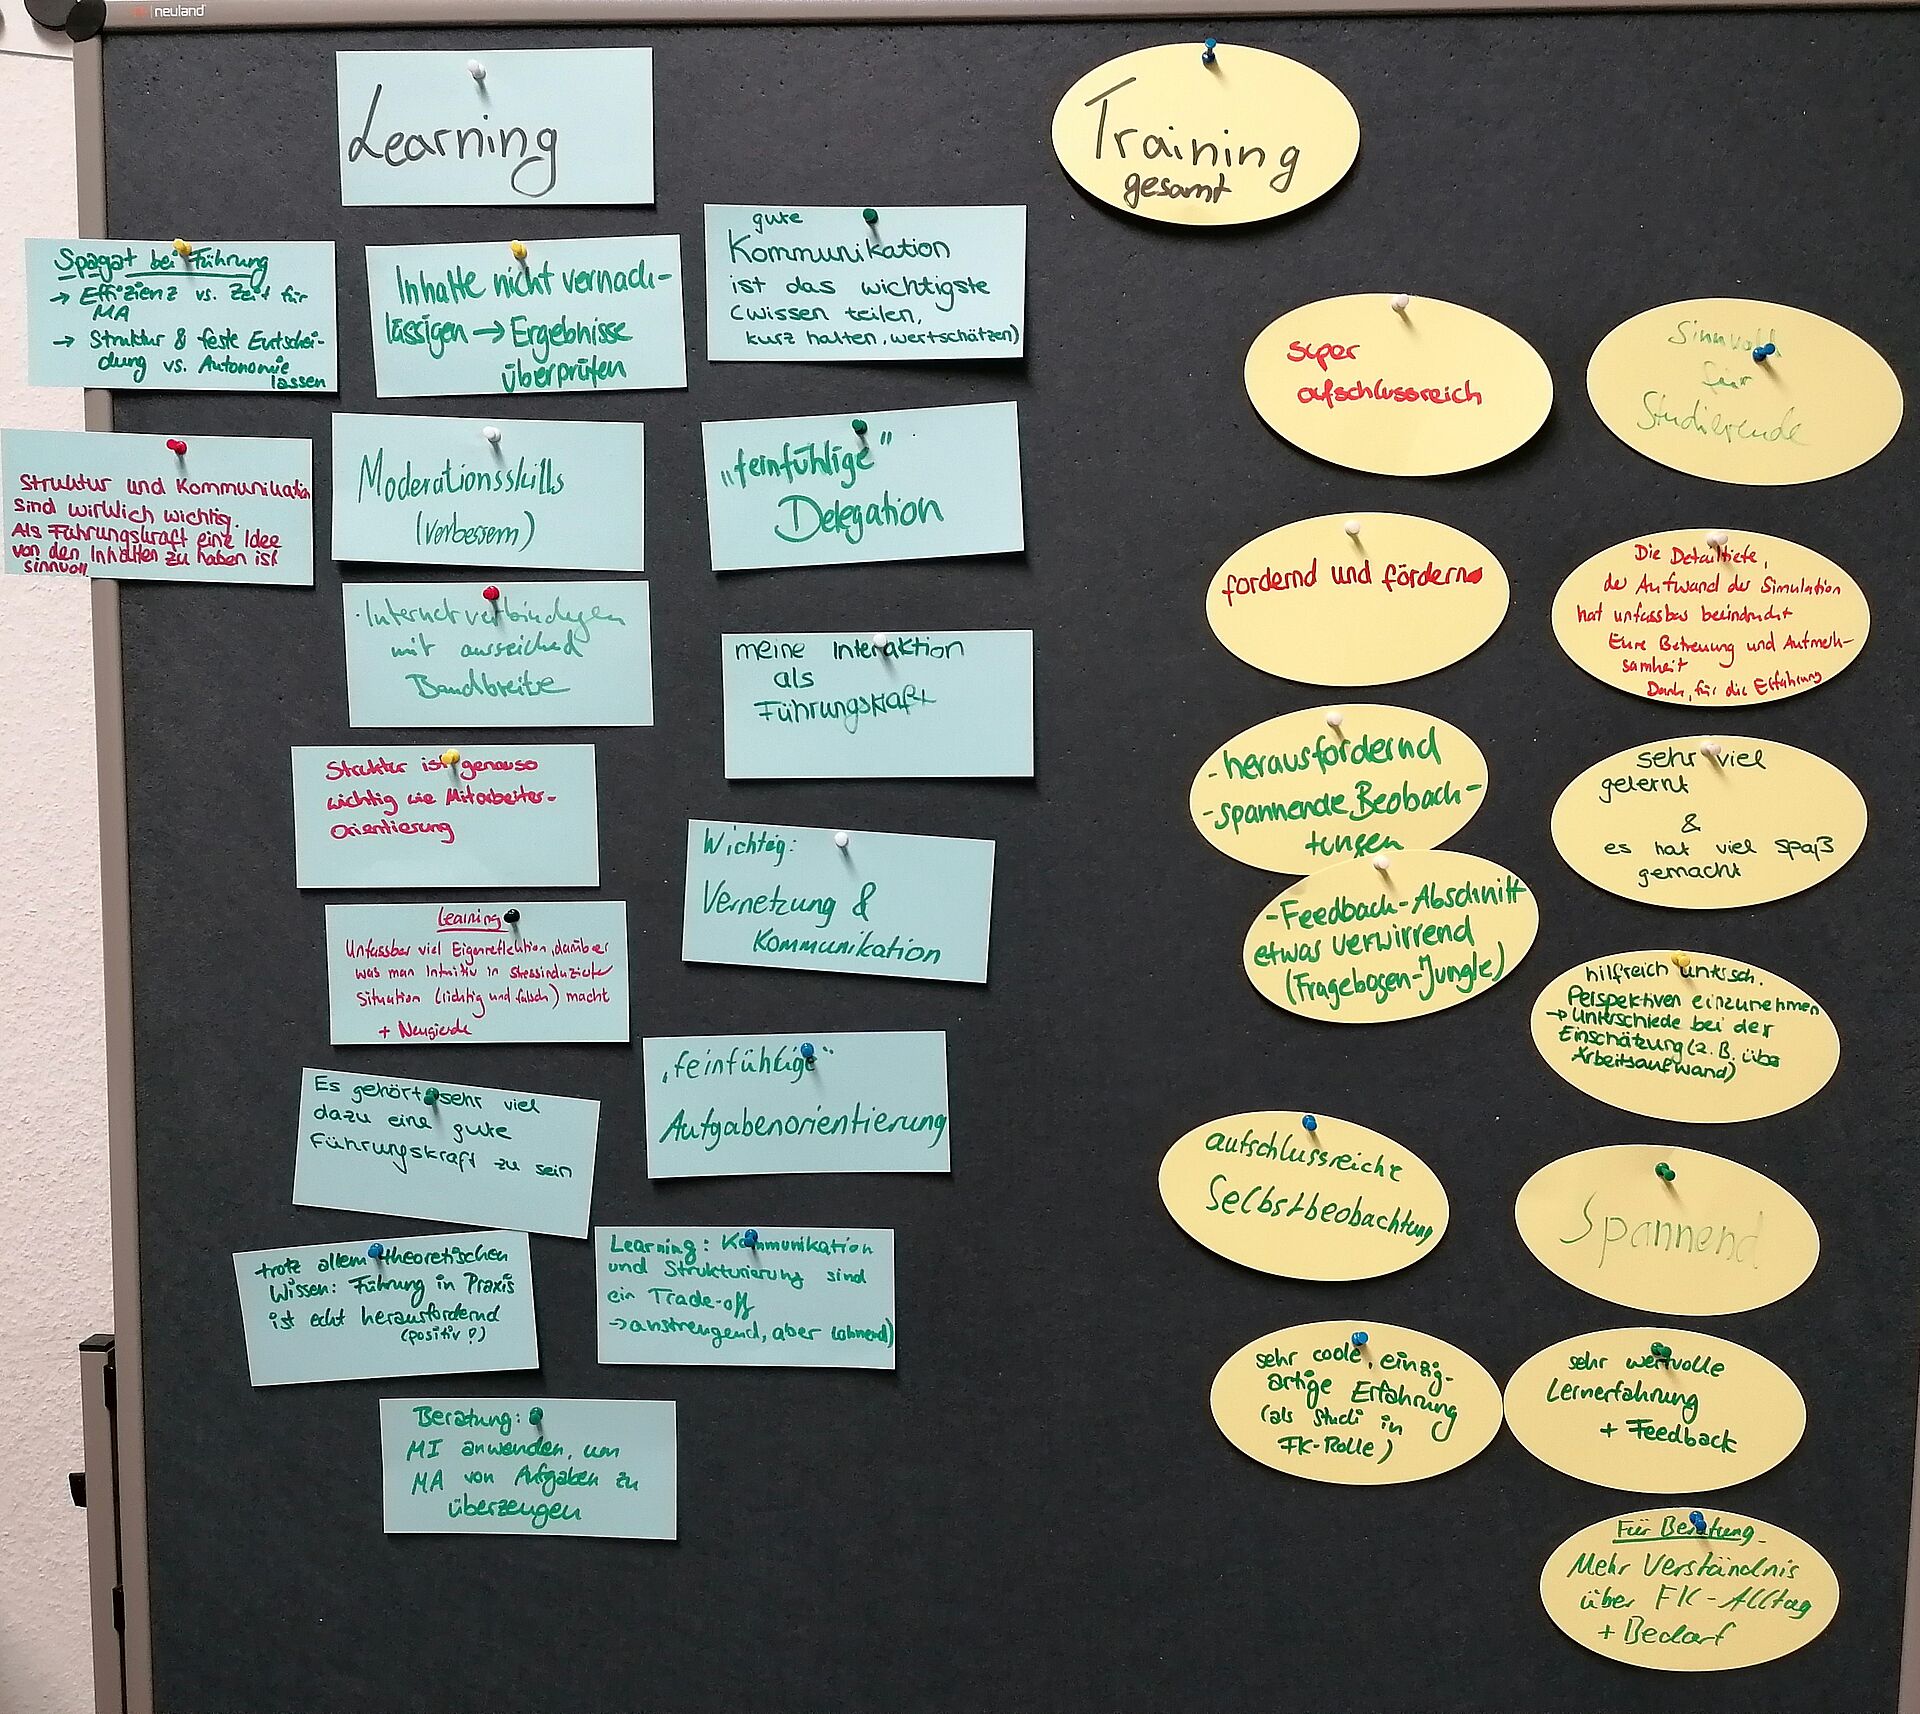 neuland
Learning
Spagat bei Führung
→ Effizienz vs. Zeit für
MA
→ Struktur & feste Entschei-
dung vs. Autonomie
lassen
Inhalte nicht vernach-
lässigen → Ergebnisse
überprüfen
gute
Kommunikation
ist das wichtigste
(wissen teilen,
kurz halten, wertschätzen)
Struktur und Kommunikation
sind wirklich wichtig.
Als Führungskraft eine Idee
von den Inhalten zu haben ist
sinnvoll
Moderationsskills
(verbessern)
„feinfühlige“
Delegation
· Internetverbindungen
mit ausreichend
Bandbreite
meine Interaktion
als
Führungskraft
Struktur ist genauso
wichtig wie Mitarbeiter-
Orientierung
Wichtig:
Vernetzung &
Kommunikation
Learning
Unfassbar viel Eigenreflektion, darüber
was man intuitiv in stressinduzierter
Situation (richtig und falsch) macht
+ Neugierde
„feinfühlige“
Aufgabenorientierung
Es gehört sehr viel
dazu eine gute
Führungskraft zu sein
trotz allem theoretischen
Wissen: Führung in Praxis
ist echt herausfordernd
(positiv!)
Learning: Kommunikation
und Strukturierung sind
ein Trade-off
→ anstrengend, aber lohnend)
Beratung:
MI anwenden, um
MA von Aufgaben zu
überzeugen
Training
gesamt
super
aufschlussreich
Sinnvoll
für
Studierende
fordernd und fördernd
Die Detailtiefe,
der Aufwand der Simulation
hat unfassbar beeindruckt
Eure Betreuung und Aufmerk-
samkeit
Dank, für die Erfahrung
- herausfordernd
- spannende Beobach-
tungen
sehr viel
gelernt
&
es hat viel Spaß
gemacht
- Feedback-Abschnitt
etwas verwirrend
(Fragebogen-Jungle)
hilfreich untersch.
Perspektiven einzunehmen
→ Unterschiede bei der
Einschätzung (z.B. über
Arbeitsaufwand)
aufschlussreiche
Selbstbeobachtung
Spannend
sehr coole, einzig-
artige Erfahrung
(als Studi in
FK-Rolle)
sehr wertvolle
Lernerfahrung
+ Feedback
Für Beratung
Mehr Verständnis
über FK-Alltag
+ Bedarf